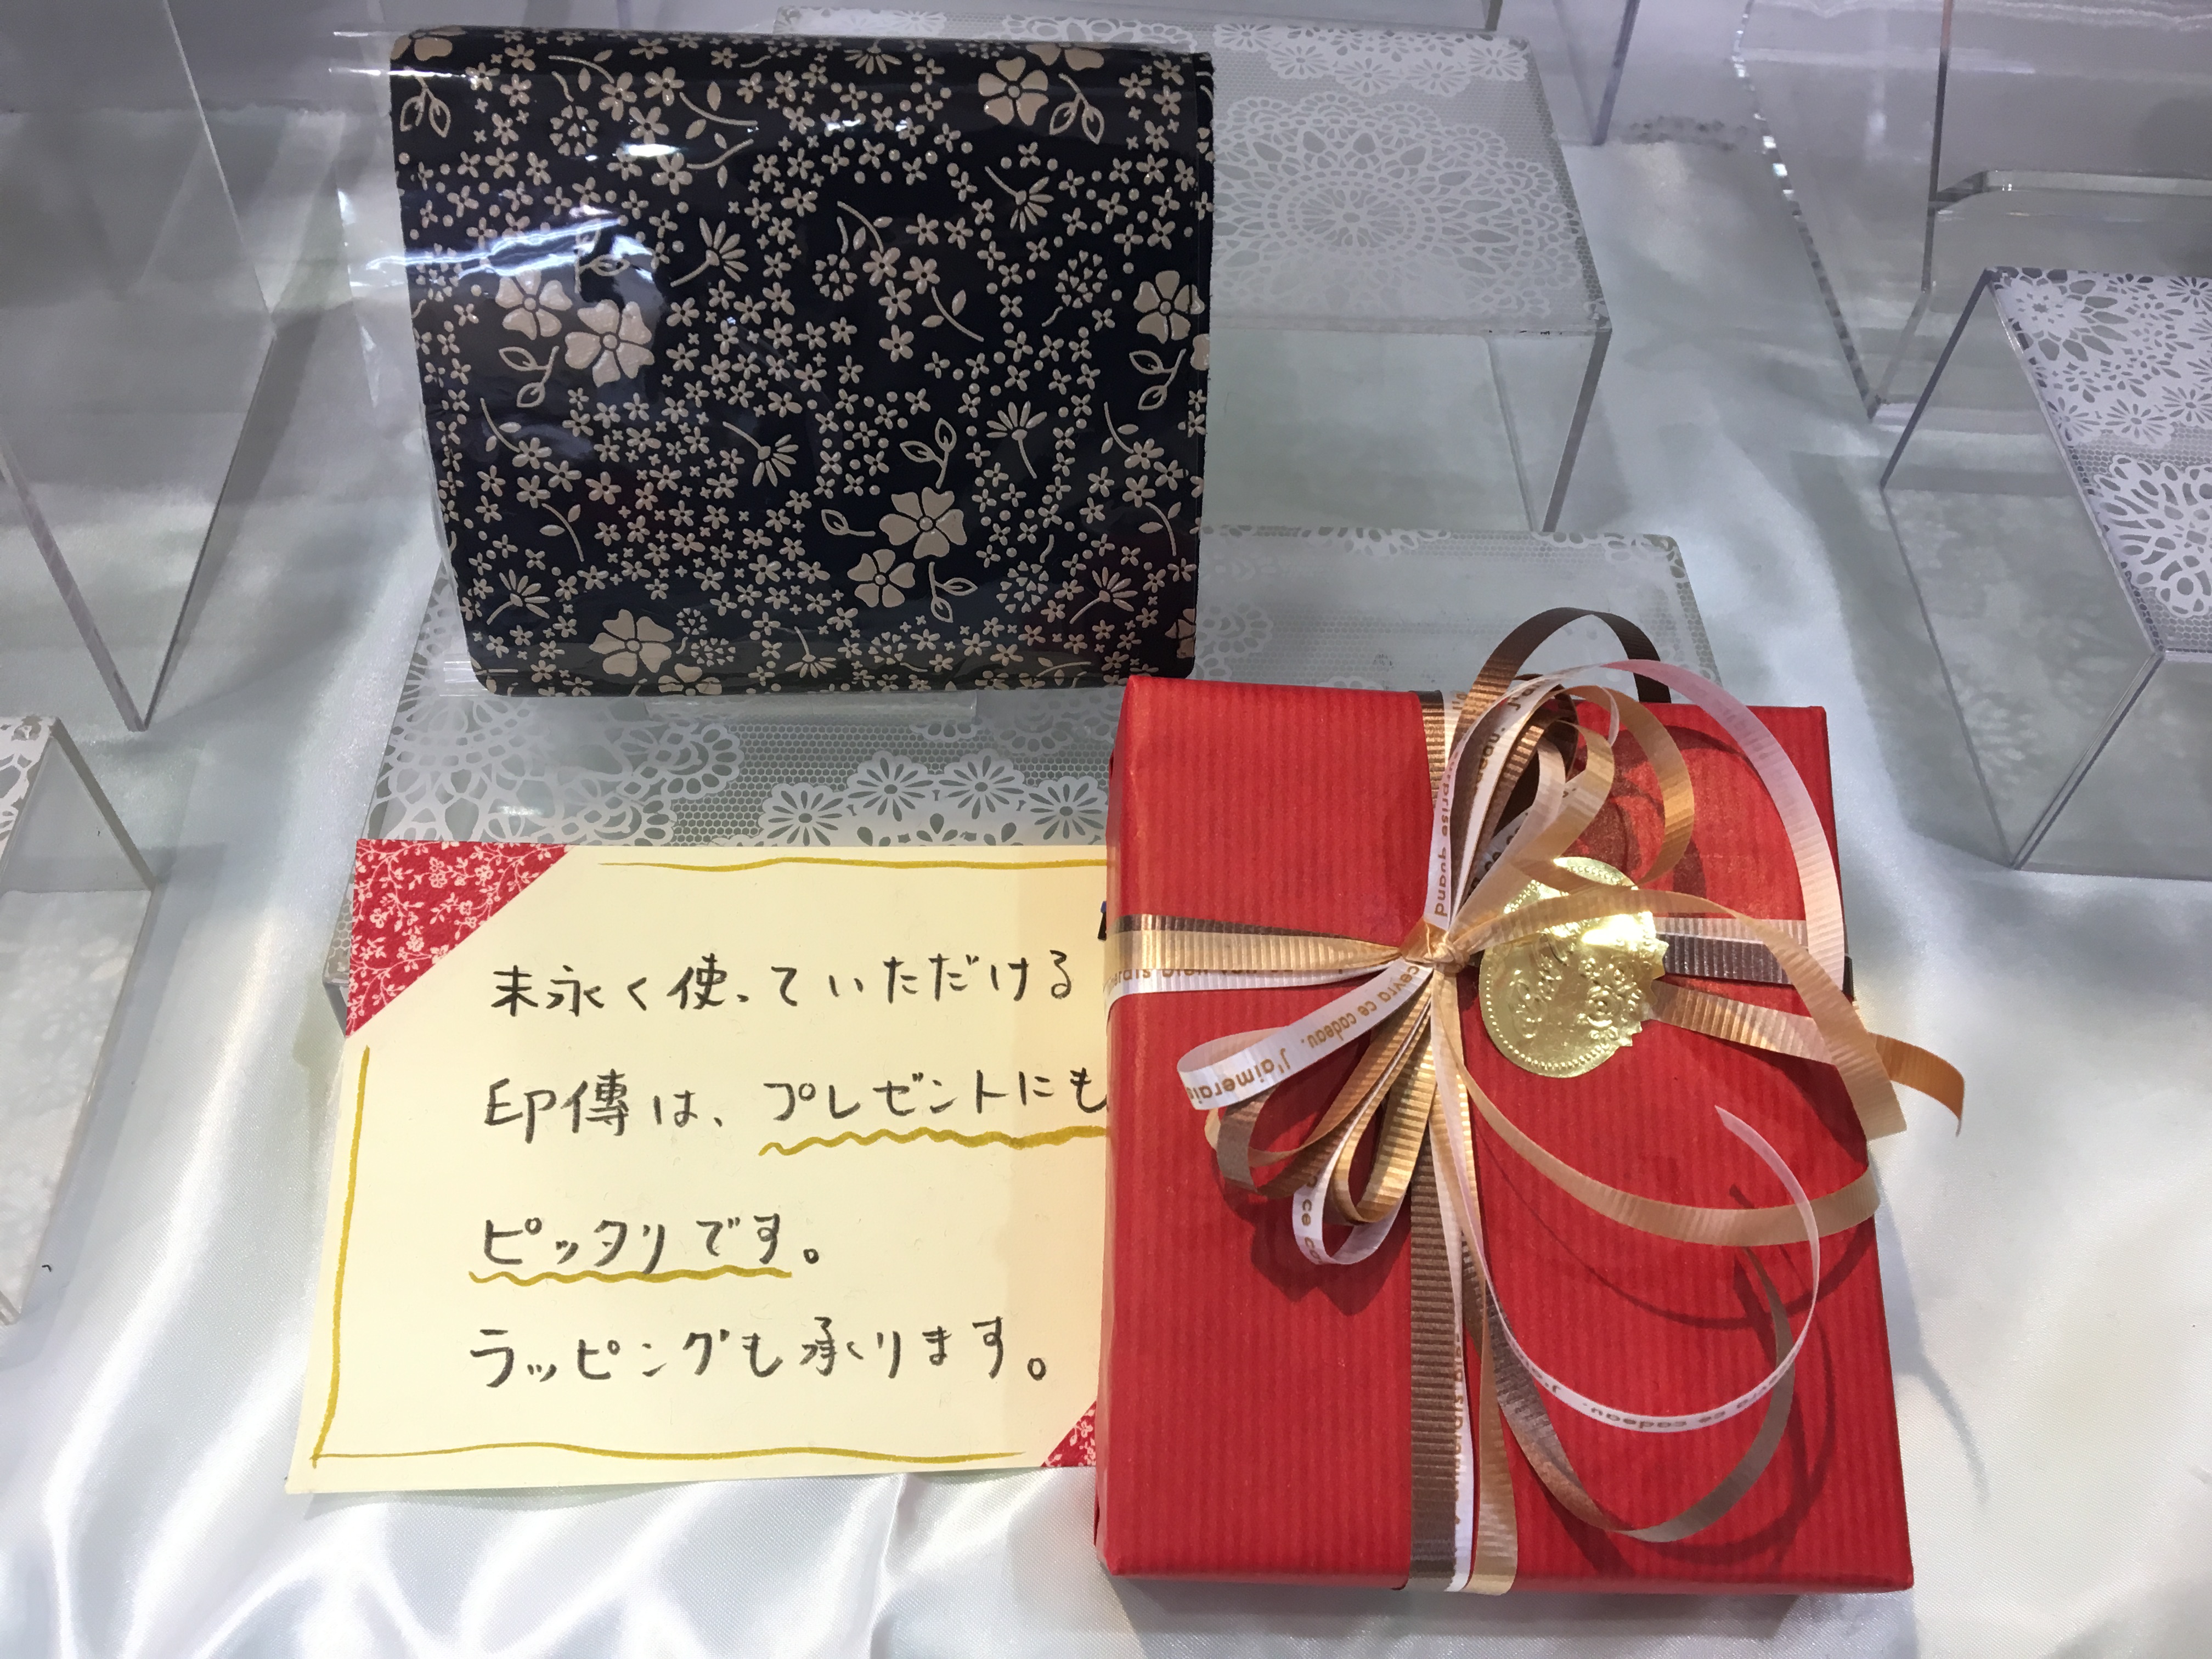 末永く使っていただける
印傳は、プレゼントにも
ピッタリです。
ラッピングも承ります。
cevra ce cadeau. J'aimerais